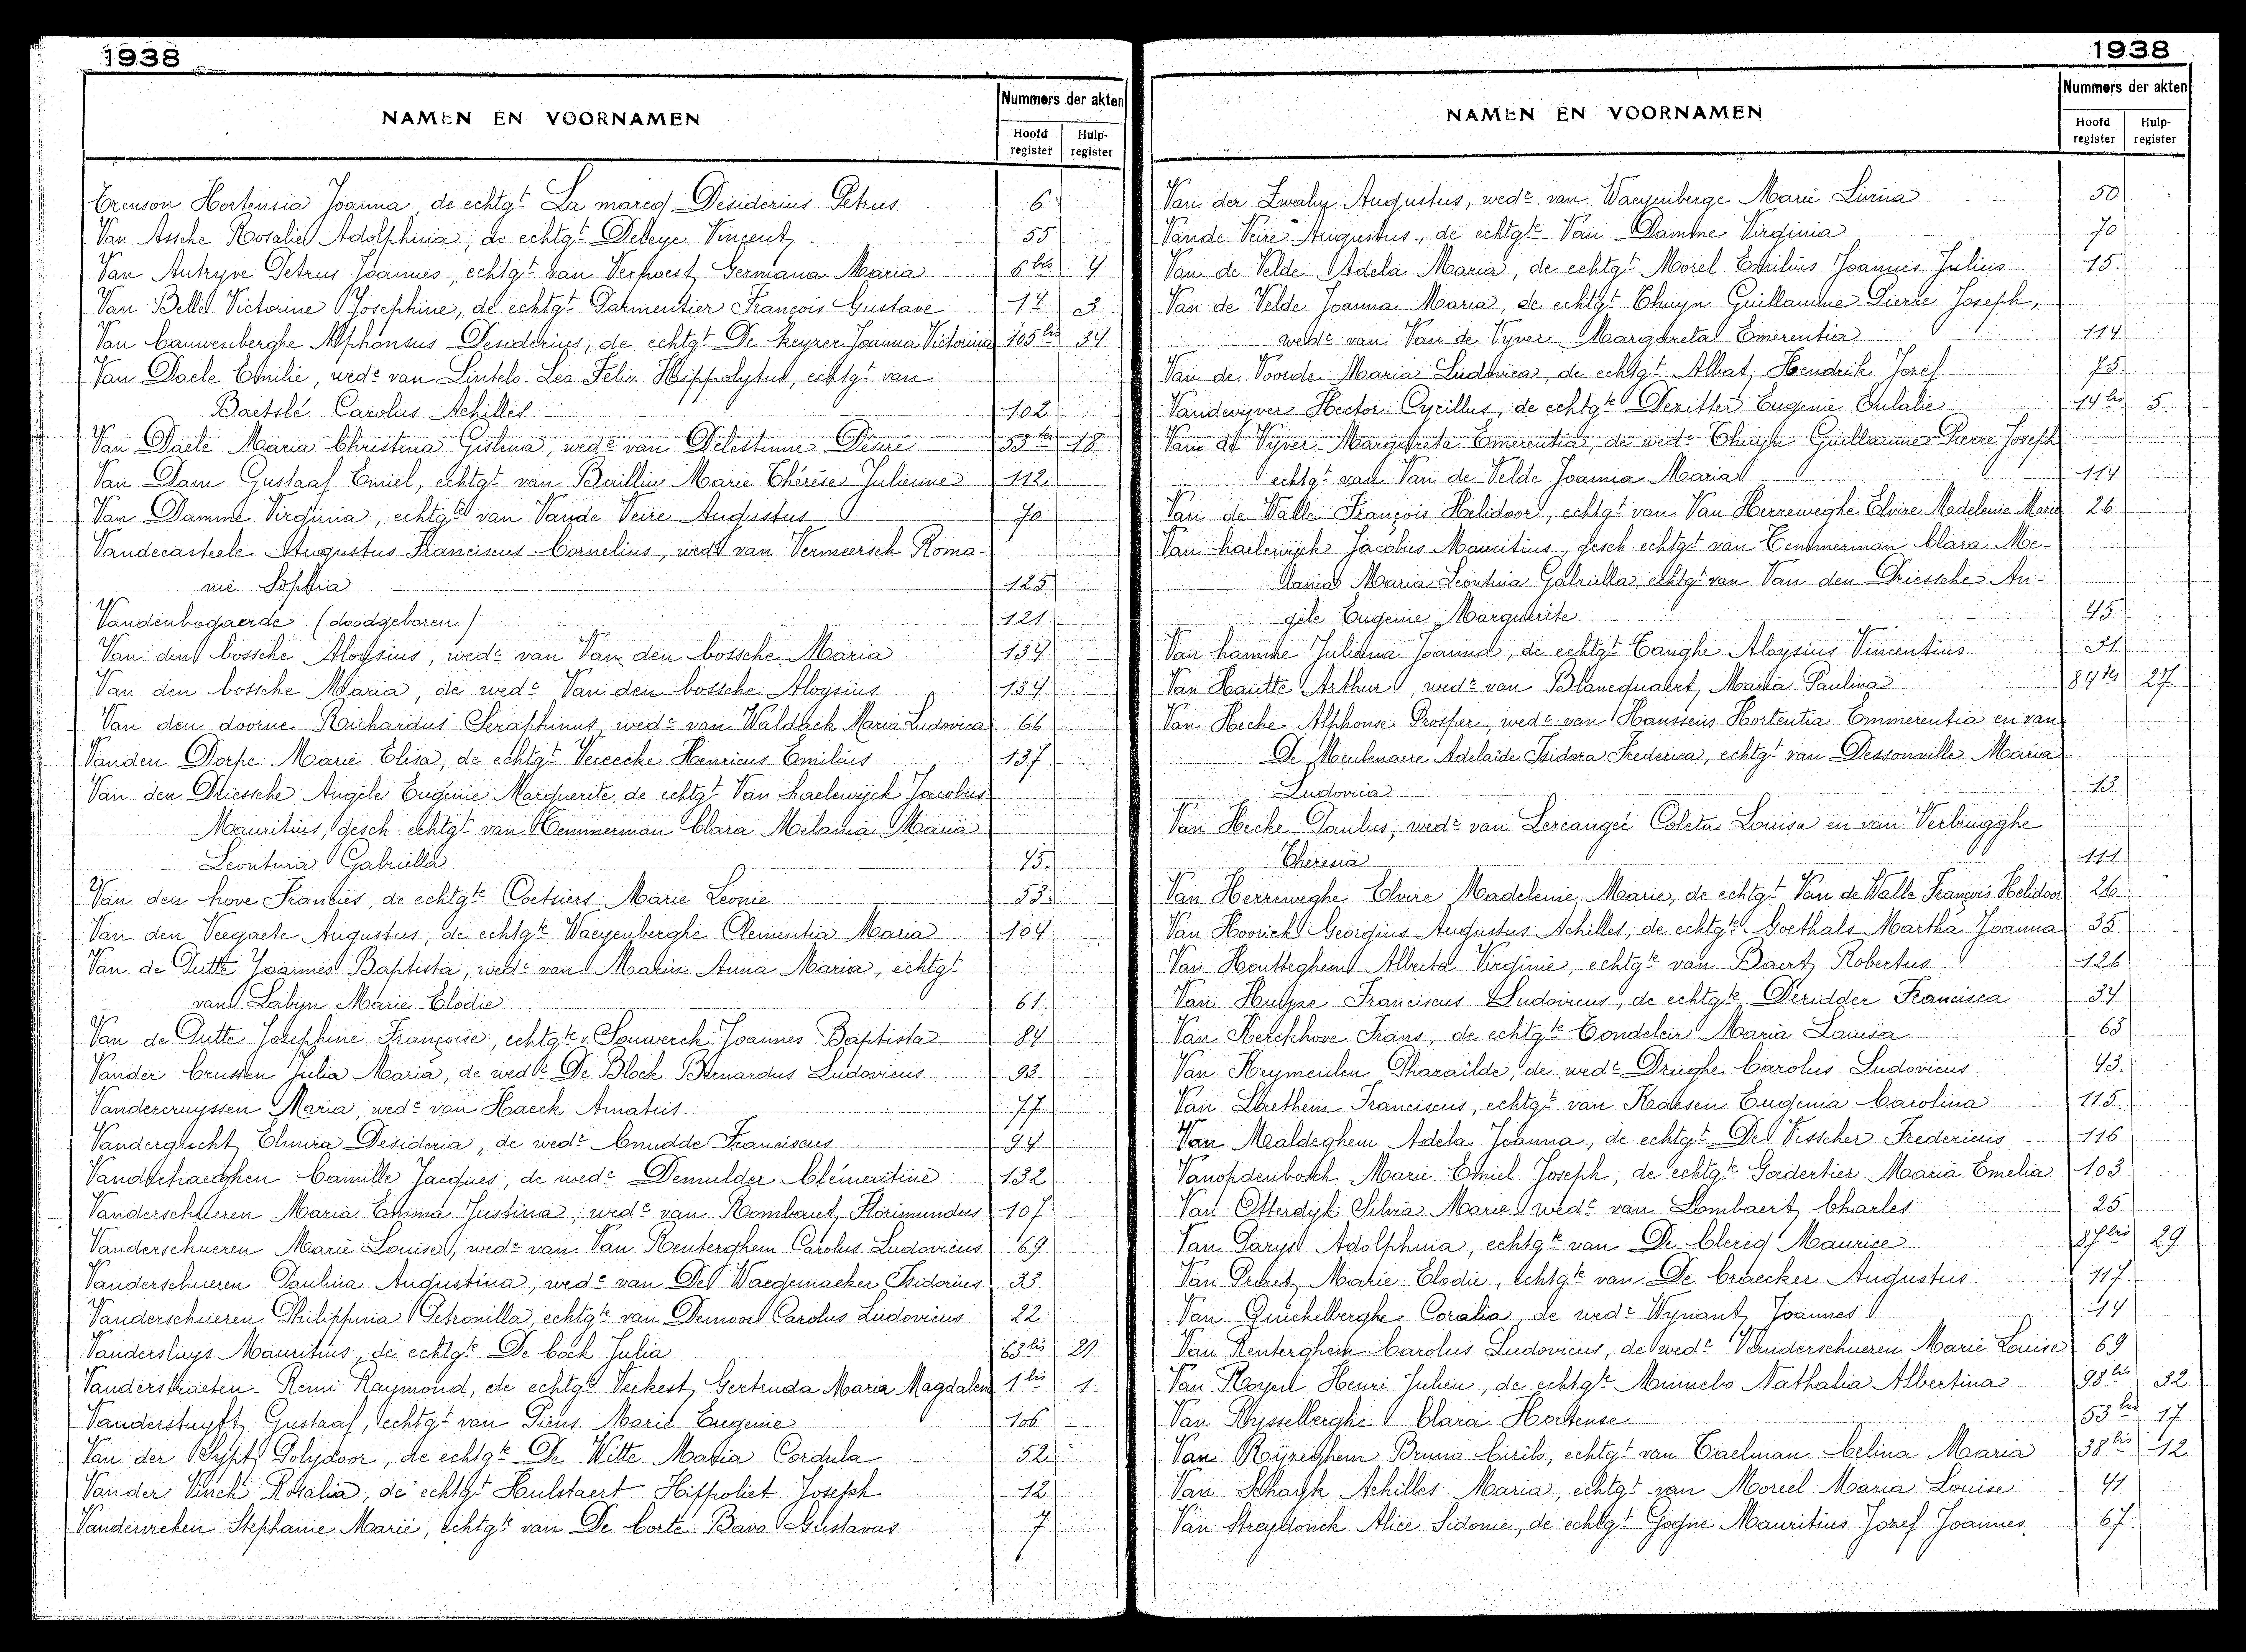 1938
NAMEN EN VOORNAMEN
Nummers der akten
Hoofd register
Hulp- register
Crenson Hortensia Joanna, de echtgt Petrus 6
Van Assche Rosalie Adolphina, de echtgt Deleye Vincent 55
Van Autryve Petrus Joannes, echtgt van Verhoest Germana Maria 6bis 4
Van Belle Victorine Josephine, de echtgt Parmentier François Gustave 14 3
Van Cauwenberghe Alphonsus Desiderius, de echtgt De Keyzer Joanna Victorina 105bis 34
Van Daele Emilie, wede van Lintelo Leo Felix Hippolytus, echtgt van
Baetslé Carolus Achilles 102
Van Daele Maria Christina Gislena, wede van Delestinne Désiré 53ter 18
Van Dam Gustaaf Emiel, echtgt van Baillin Marie Thérèse Julienne 112
Van Damme Virginia, echtgte van Vande Veire Augustus 70
Vandecasteele Augustus Franciscus Cornelius, wede van Vermeersch Roma-
nie Sophia 125
Vandenbogaerde (doodgeboren) 121
Van den bossche Aloysius, wede van Van den bossche Maria 134
Van den bossche Maria, de wede Van den bossche Aloysius 134
Van den doorne Richardus Seraphinus, wede van Waldack Maria Ludovica 66
Vanden Dorpe Marie Elisa, de echtgt Vereecke Henricus Emilius 137
Van den Driessche Angèle Eugénie Marguerite, de echtgt Van haelewijck Jacobus
Mauritius, gesch. echtgt van Temmerman Clara Melania Maria
Leontina Gabriella 45
Van den hove Francies, de echtgte Coetsiers Marie Leonie 53
Van den Veegaete Augustus, de echtgte Waeyenberghe Clementia Maria 104
Van de Putte Joannes Baptista, wede van Marin Anna Maria, echtgt
van Labyn Marie Elodie 61
Van de Putte Josephine Françoise, echtgte v. Souwerck Joannes Baptista 84
Vander Crussen Julia Maria, de wede De Block Bernardus Ludovicus 93
Vandercruyssen Maria, wede van Haeck Amatus 77
Vandergucht Elmira Desideria, de wede Cnudde Franciscus 94
Vanderhaeghen Camille Jacques, de wede Demulder Clémentine 132
Vanderschueren Maria Emma Justina, wede van Rombaut Florimundus 107
Vanderschueren Marie Louise, wede van Van Renterghem Carolus Ludovicus 69
Vanderschueren Paulina Augustina, wede van De Waegemaeker Isidorius 33
Vanderschueren Philippina Petronilla, echtgte van Demoor Carolus Ludovicus 22
Vandersluys Mauritius, de echtgte De bock Julia 63bis 21
Vanderstraeten Remi Raymond, de echtgte Verkest Gertruda Maria Magdalena 1bis 1
Vanderstuyft Gustaaf, echtgt van Piens Marie Eugenie 106
Van der Sypt Polydoor, de echtgte De Witte Maria Cordula 52
Vander Vinck Rosalia, de echtgt Hulstaert Hippoliet Joseph 12
Vandevreken Stephanie Marie, echtgte van De Corte Bavo Gustavus 7
1938
NAMEN EN VOORNAMEN
Nummers der akten
Hoofd register
Hulp- register
Van der Augustus, wede van Waeyenberge Marie Livina 50
Vande Veire Augustus, de echtgte Van Damme Virginia 70
Van de Velde Adela Maria, de echtgt Morel Emilius Joannes Julius 15
Van de Velde Joanna Maria, de echtgt Thuyn Guillaume Pierre Joseph,
wede van Van de Vyver Margareta Emerentia 114
Van de Voorde Maria Ludovica, de echtgt Albat Hendrik Jozef 75
Vandevyver Hector Cyrillus, de echtgte Dezitter Eugenie Eulalie 14bis 5
Van de Vyver Margareta Emerentia, de wede Thuyn Guillaume Pierre Joseph
echtgt van Van de Velde Joanna Maria 114
Van de Walle François Helidoor, echtgt van Van Herreweghe Elvire Madeleine Marie 26
Van haelewijck Jacobus Mauritius, gesch. echtgt van Temmerman Clara Me-
lania Maria Leontina Gabriella, echtgt van Van den Driessche An-
gèle Eugenie Marguerite 45
Van hamme Juliana Joanna, de echtgt Tanghe Aloysius Vincentius 31
Van Hautte Arthur, wede van Blancquaert Maria Paulina 84bis 27
Van Hecke Alphonse Prosper, wede van Haussens Hortentia Emmerentia en van
De Meulenaere Adelaïde Isidora Frederica, echtgt van Dessonville Maria
Ludovica 13
Van Hecke Paulus, wede van Lercangée Coleta Louisa en van Verbrugghe
Theresia 111
Van Herreweghe Elvire Madeleine Marie, de echtgt Van de Walle François Helidoor 26
Van Hoorick Georgius Augustus Achilles, de echtgte Goethals Martha Joanna 35
Van Houtteghem Alberta Virginie, echtgte van Baert Robertus 126
Van Hulze Franciscus Ludovicus, de echtgte Deridder Francisca 34
Van Kerckhove Frans, de echtgte Tondeleir Maria Louisa 63
Van Krymeulen Pharaïlde, de wede Drieghe Carolus Ludovicus 43
Van Laethem Franciscus, echtgt van Kaesen Eugenia Carolina 115
Van Maldeghem Adela Joanna, de echtgt De Visscher Fredericus 116
Vanopdenbosch Marie Emiel Joseph, de echtgte Gadertier Maria Emelia 103
Van Otterdyk Silvia Marie wede van Lombaert Charles 25
Van Parys Adolphina, echtgte van De Clercq Maurice 87bis 29
Van Praet Marie Elodie, echtgte van De Craecker Augustus 117
Van Quickelberghe Coralia, de wede Wynant Joannes 14
Van Renterghem Carolus Ludovicus, de wede Vanderschueren Marie Louise 69
Van Royen Henri Julien, de echtgte Minnebo Nathalia Albertina 98bis 32
Van Rysselberghe Clara Hortense 53bis 17
Van Rijzeghem Bruno Cirilo, echtgt van Taelman Celina Maria 38bis 12
Van Schayk Achilles Maria, echtgt van Moreel Maria Louise 41
Van Streydonck Alice Sidonie, de echtgt Gogne Mauritius Jozef Joannes, 67